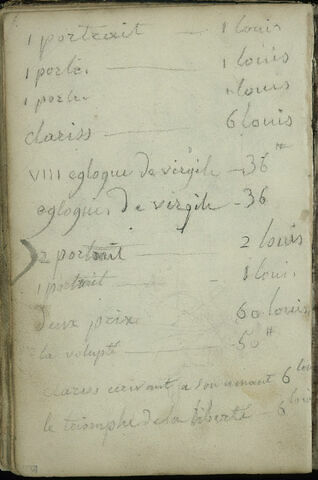 1 portrait — 1 louis
1 portr. — 1 louis
1 portr. 1 louis
clariss — 6 louis
VIII eglogue de virgile — 36 ₶
eglogues de virgile — 36
2 portrait — 2 louis
1 portrait — 1 louis
deux prix 60 louis
la volupté — 50 ₶
clariss ecrivant a son amant 6 loui
le triomphe de la liberté — 6 loui